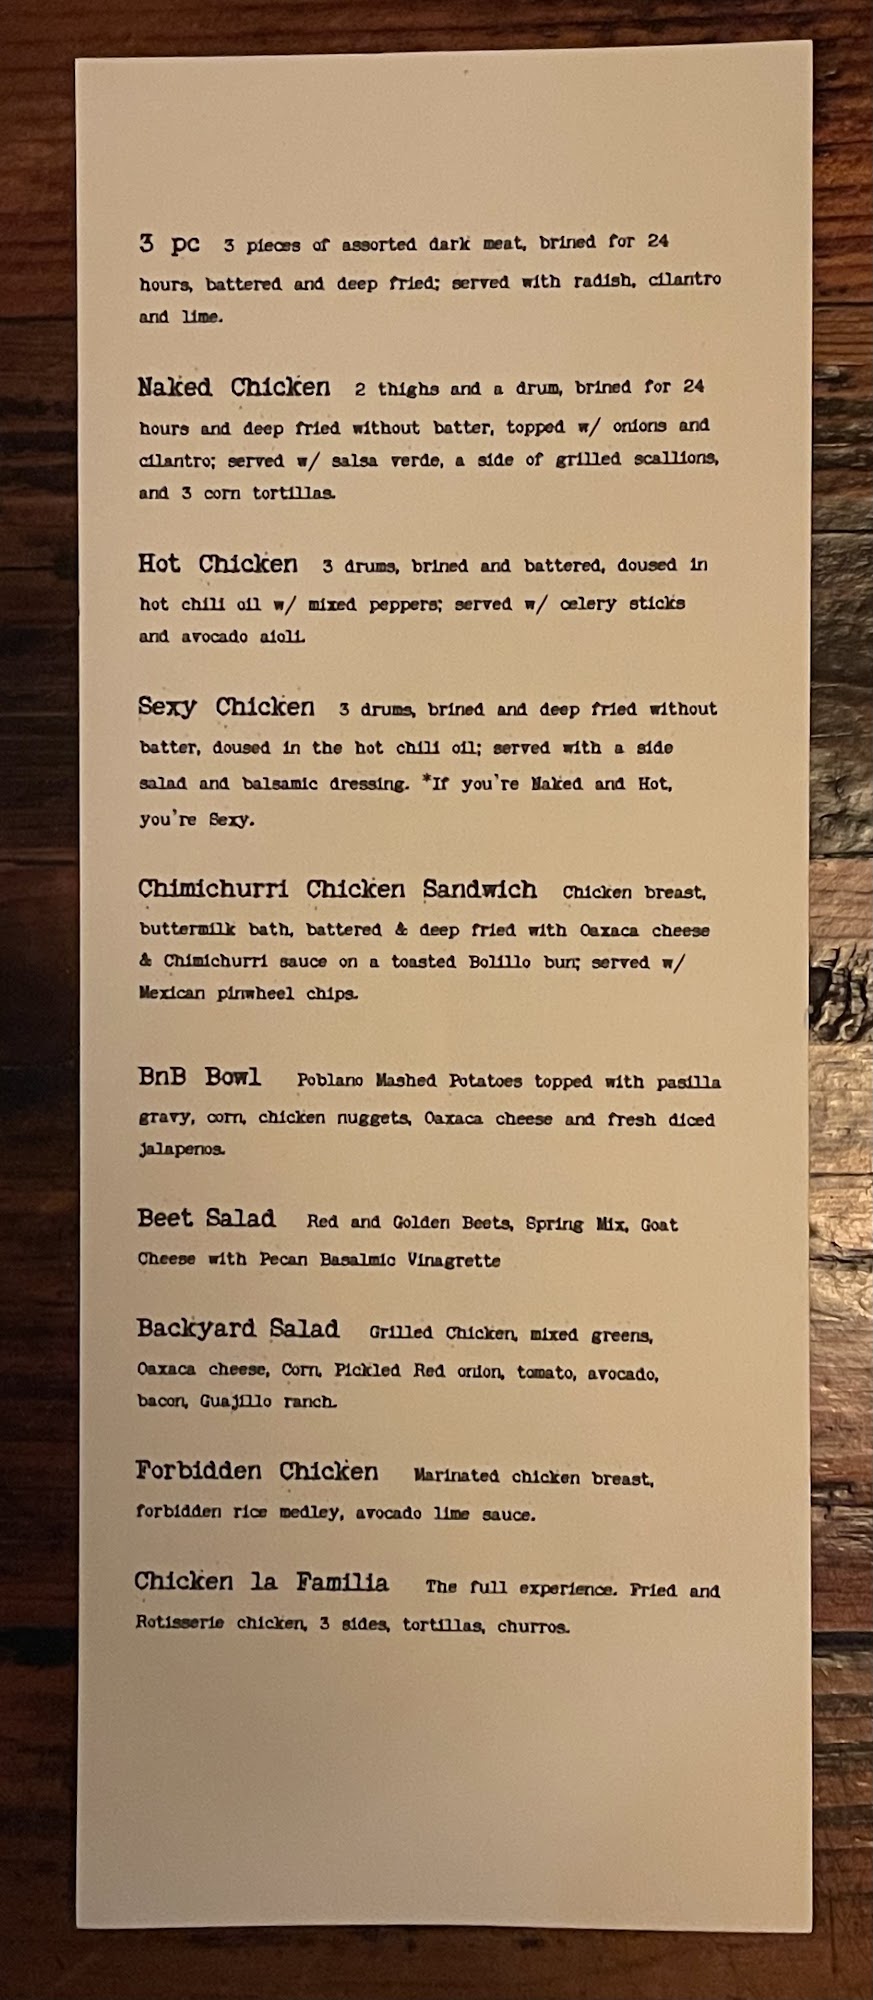 3 pc 3 pieces of assorted dark meat, brined for 24
hours, battered and deep fried; served with radish, cilantro
and lime.
Naked Chicken 2 thighs and a drum, brined for 24
hours and deep fried without batter, topped w/ onions and
cilantro; served w/ salsa verde, a side of grilled scallions,
and 3 corn tortillas.
Hot Chicken 3 drums, brined and battered, doused in
hot chili oil w/ mixed peppers; served w/ celery sticks
and avocado aioli.
Sexy Chicken 3 drums, brined and deep fried without
batter, doused in the hot chili oil; served with a side
salad and balsamic dressing. *If you're Naked and Hot,
you're Sexy.
Chimichurri Chicken Sandwich Chicken breast,
buttermilk bath, battered & deep fried with Oaxaca cheese
& Chimichurri sauce on a toasted Bolillo bun; served w/
Mexican pinwheel chips.
BnB Bowl Poblano Mashed Potatoes topped with pasilla
gravy, corn, chicken nuggets, Oaxaca cheese and fresh diced
jalapenos.
Beet Salad Red and Golden Beets, Spring Mix, Goat
Cheese with Pecan Basalmic Vinagrette
Backyard Salad Grilled Chicken, mixed greens,
Oaxaca cheese, Corn, Pickled Red onion, tomato, avocado,
bacon, Guajillo ranch.
Forbidden Chicken Marinated chicken breast,
forbidden rice medley, avocado lime sauce.
Chicken la Familia The full experience. Fried and
Rotisserie chicken, 3 sides, tortillas, churros.